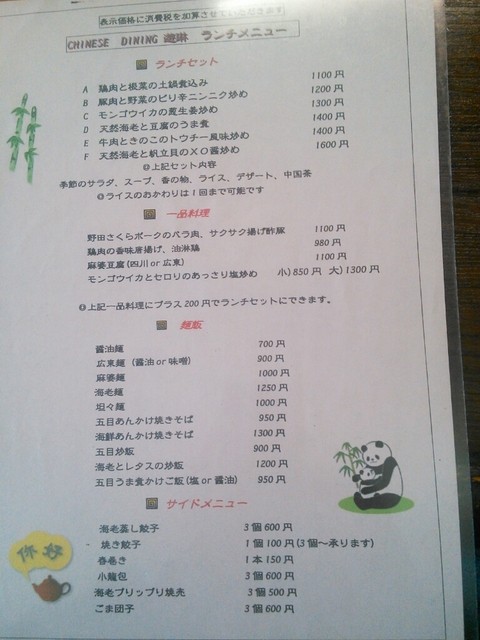 表示価格に消費税を加算させていただきます
CHINESE DINING 遊琳 ランチメニュー
ランチセット
A 鶏肉と根菜の土鍋煮込み 1100円
B 豚肉と野菜のピリ辛ニンニク炒め 1200円
C モンゴウイカの葱生姜炒め 1300円
D 天然海老と豆腐のうま煮 1400円
E 牛肉ときのこのトウチー風味炒め 1400円
F 天然海老と帆立貝のXO醤炒め 1600円
◎上記セット内容
季節のサラダ、スープ、香の物、ライス、デザート、中国茶
◎ライスのおかわりは1回まで可能です
一品料理
野田さくらポークのバラ肉、サクサク揚げ酢豚 1100円
鶏肉の香味唐揚げ、油淋鶏 980円
麻婆豆腐(四川or広東) 1100円
モンゴウイカとセロリのあっさり塩炒め 小)850円 大)1300円
◎上記一品料理にプラス200円でランチセットにできます。
麺飯
醤油麺 700円
広東麺(醤油or味噌) 900円
麻婆麺 1000円
海老麺 1250円
坦々麺 1000円
五目あんかけ焼きそば 950円
海鮮あんかけ焼きそば 1300円
五目炒飯 900円
海老とレタスの炒飯 1200円
五目うま煮かけご飯(塩or醤油) 950円
サイドメニュー
海老蒸し餃子 3個600円
焼き餃子 1個100円(3個〜承ります)
春巻き 1本150円
小籠包 3個600円
海老プリップリ焼売 3個500円
ごま団子 3個600円
你好